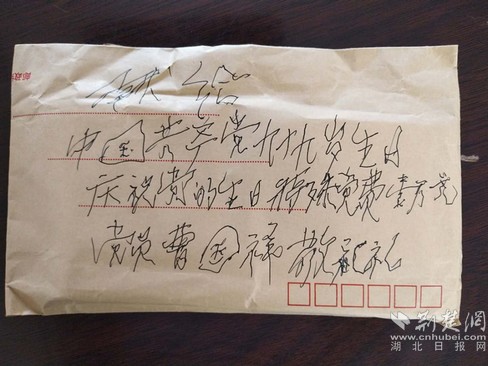 献给
中国共产党九十九岁生日
庆祝党的生日特殊党费壹万元
党员曹国敬礼
荆楚网
www.cnhubei.com
湖北日报网